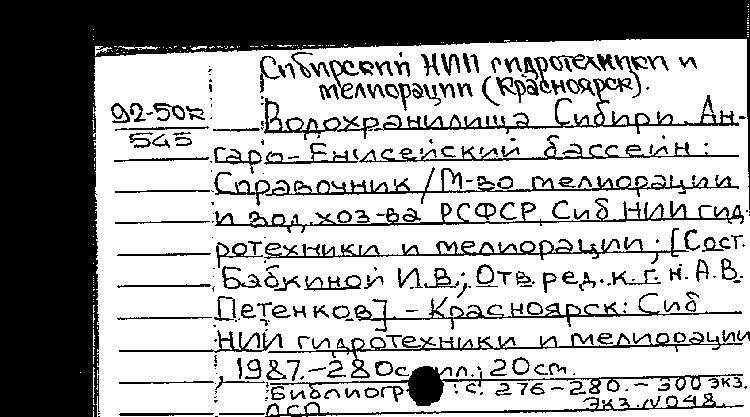 Сибирский НИИ гидротехники и
мелиорации (Красноярск).
92-50к
545
Водохранилища Сибири. Ан-
гаро-Енисейский бассейн:
Справочник / М-во мелиорации
и вод. хоз-ва РСФСР, Сиб НИИ гид
ротехники и мелиорации; [Сост.
Бабкиной И.В.; Отв ред. к. г. н. А.В.
Петенков]. - Красноярск: Сиб
НИИ гидротехники и мелиорации
, 1987. - 280с. ил.; 20см.
Библиогр : с. 276-280. - 300 экз.
ДСП Экз. N048.